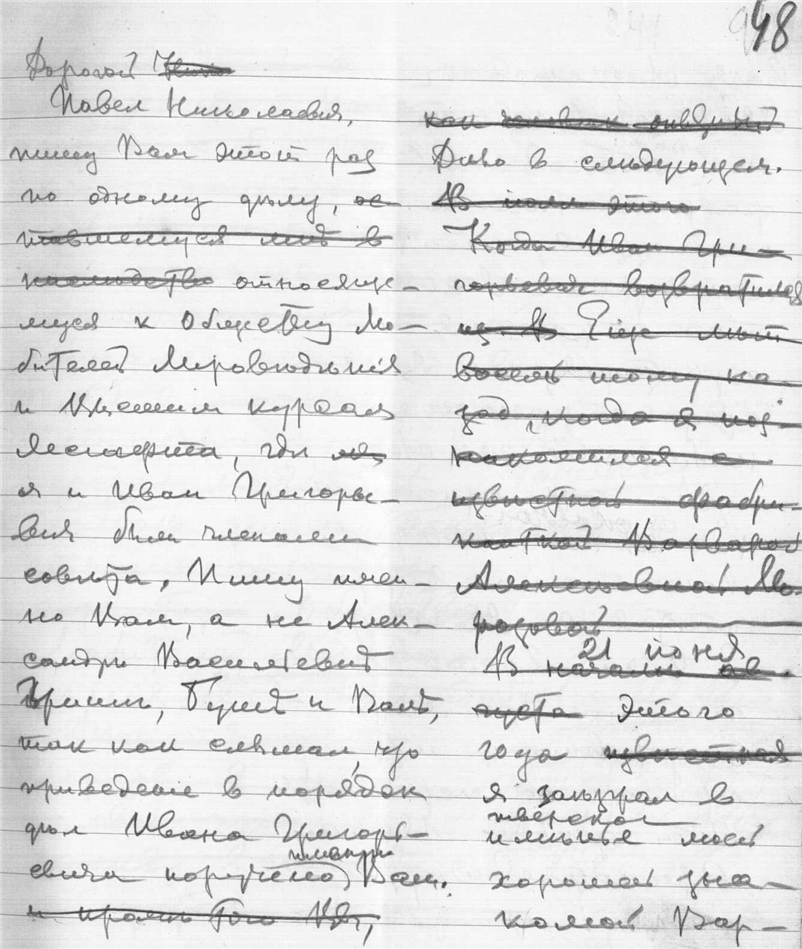 48
Дорогой
Павел Николаевич,
пишу Вам этот раз
по одному дѣлу, ос-
тавшемуся мнѣ в
наслѣдство относяще-
муся к Обществу Лю-
бителей Мировѣдѣнія
и Высшим курсам
Лесгафта, гдѣ мы
я и Иван Григорье-
вич были членами
совѣта, Пишу имен-
но Вам, а не Алек-
сандрѣ Васильевнѣ
Гришѣ, Бушѣ и Валѣ,
так как слышал, что
приведеніе в порядок
дѣл Ивана Григорь-
евича поручено Вам.
и кромѣ того
как человѣк
Дѣло в слѣдующем.
В іюлѣ этого
Когда Иван Гри-
горьевич возвратился
из В Еще лѣт
восемь тому на
зад, когда я поз
накомился с
извѣстной фабри-
канткой Варварой
Алексѣевной Мо-
розовой
21 июня
В началѣ ав
густа этого
года извѣстная
я заѣзжал в
тверское
имѣнье моей
хорошей зна-
комой Вар-